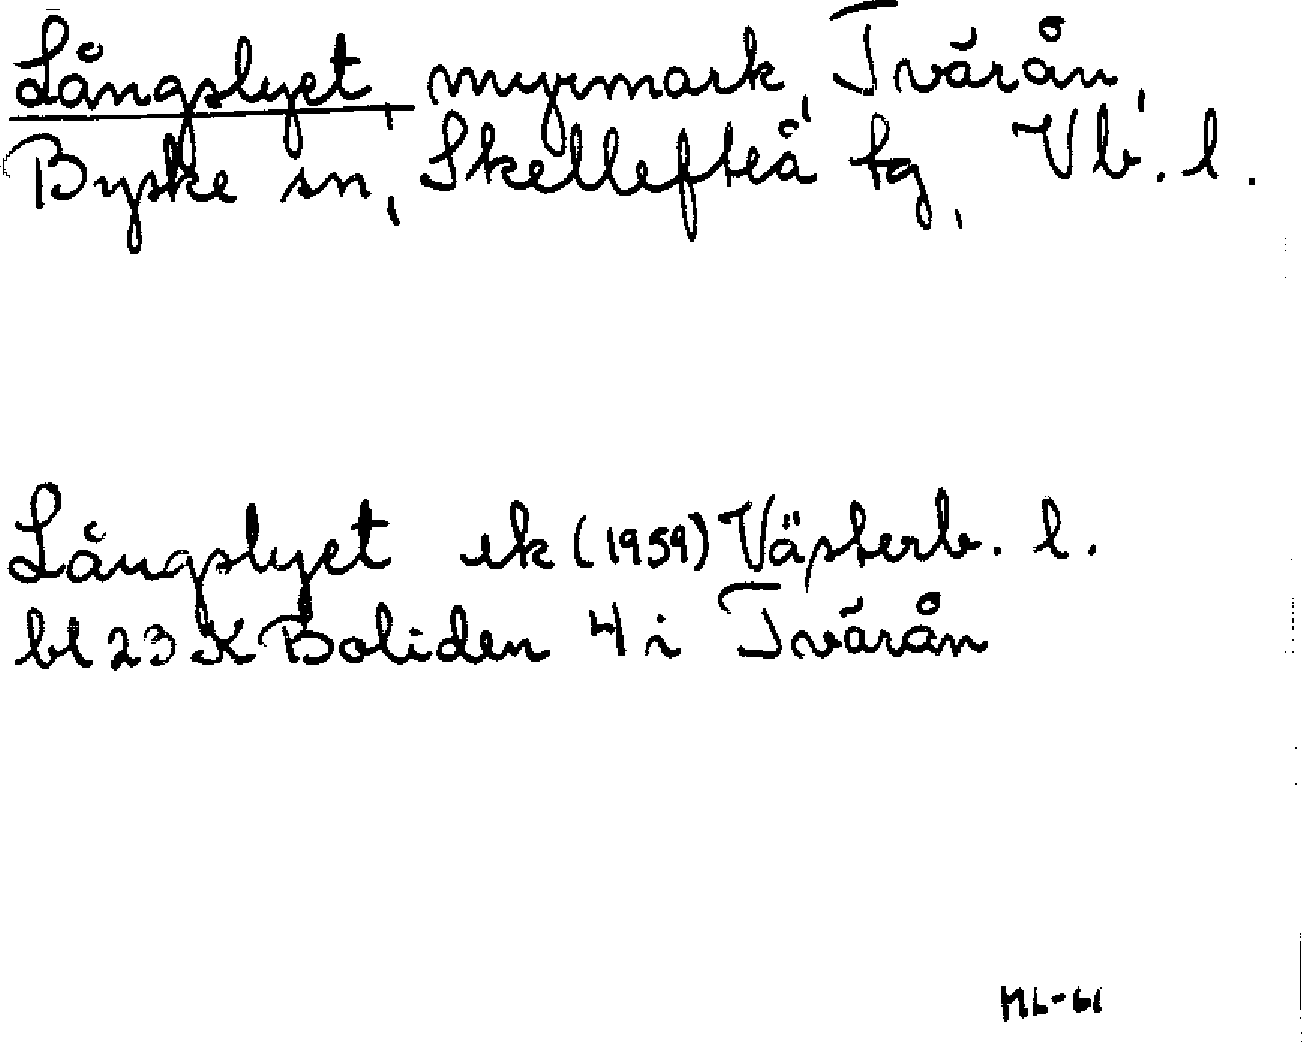 Långslyet, myrmark, Tvärån,
Byske sn, Skellefteå tg, Vb. l.
Långslyet ek (1959) Västerb. l.
bl 23 K Boliden 4 i Tvärån
ML-61